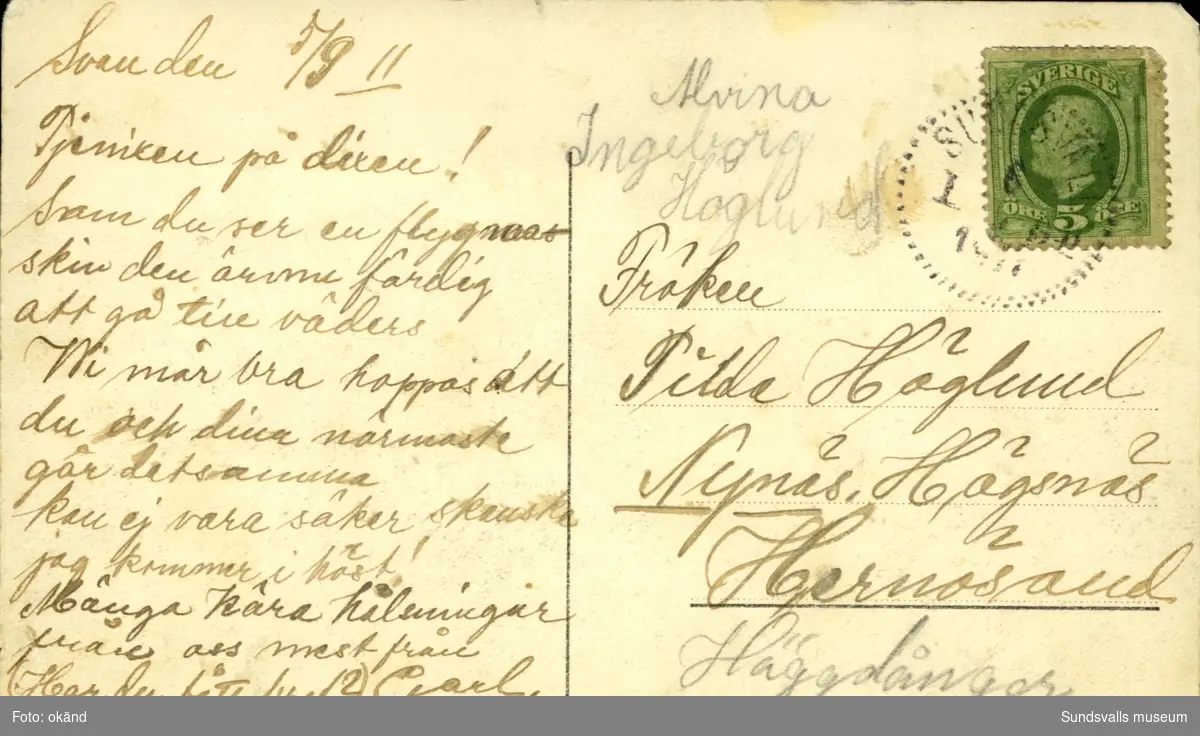 Svanden 5/9 11
Tjenixen på dixen!
Som du ser en flygmas
skin den är nu färdig
att gå till väders
Wi mår bra hoppas att
du och dina närmaste
gör detsamma
kan ej vara säker skanske
jag kommer i höst!
Många kära hälsningar
från oss mest från
(Har du fått
Alvina
Ingeborg
Höglund
SVERIGE
ÖRE 5 ÖRE
1911
Fröken
Tilda Höglund
Nynäs, Högsnäs
Hernösand
Häggdånger
Foto: okänd
Sundsvalls museum